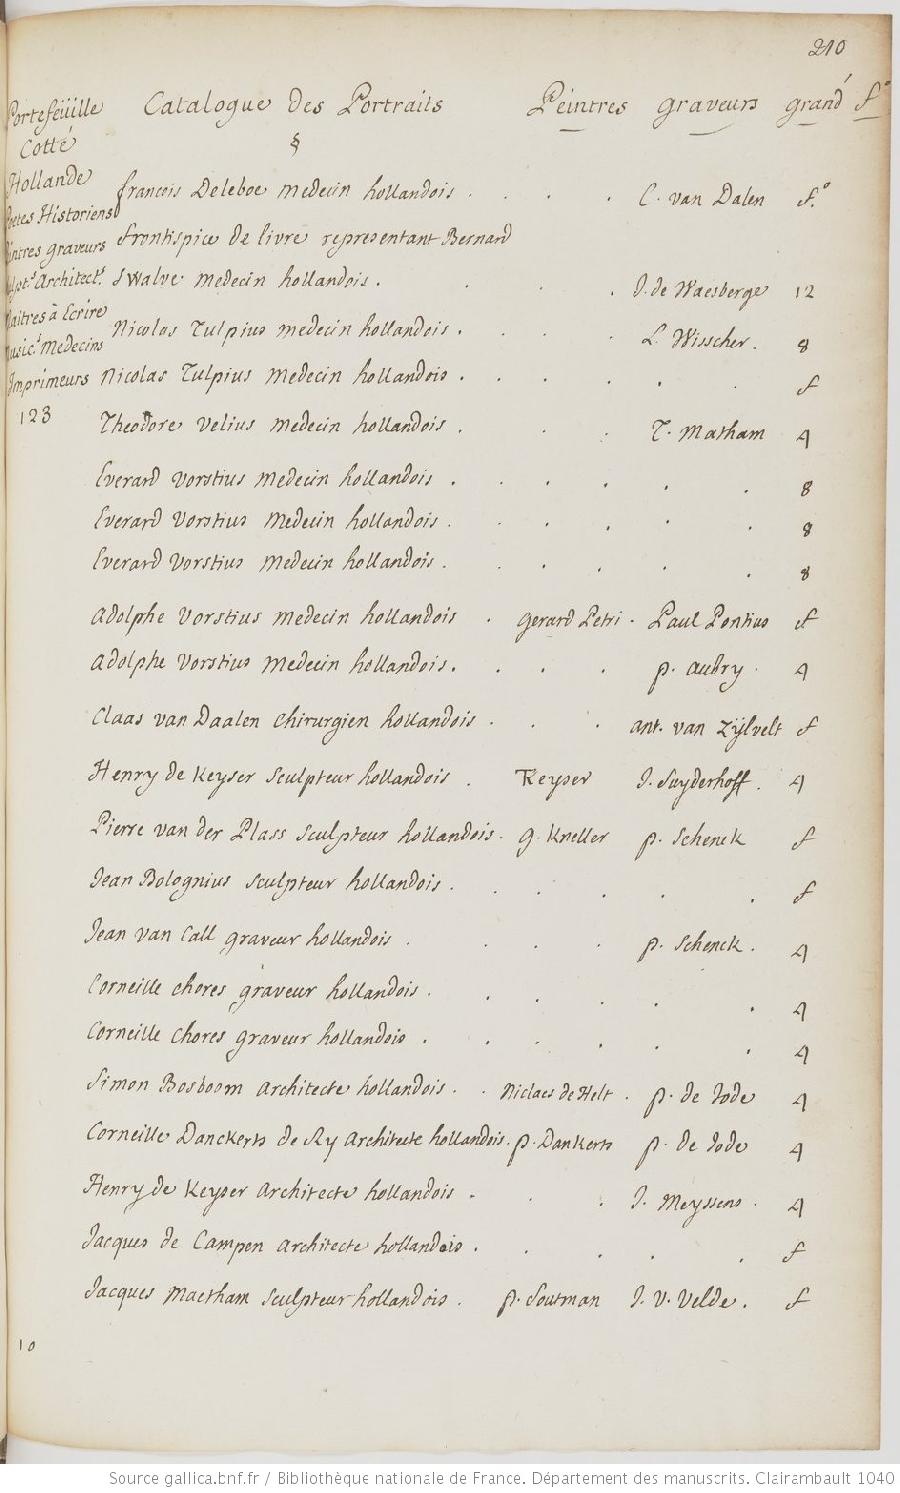 210
Portefeüille Catalogue Des Portraits Peintres graveurs grand f.º
Cotté §
Hollande
francois Deleboe medecin hollandois . . . . C. van Dalen f.º
Poetes Historiens
frontispice de livre representant Bernard
Peintres graveurs
Swalve medecin hollandois . . . . J. de Waesberge 12
Sculpt.s Architect.s
Maitres à Ecrire
Nicolas Tulpius medecin hollandois . . . . L. Wisscher . 8
Music.s Medecins
Imprimeurs Nicolas Tulpius medecin hollandois . . . . . f
123
Theodore Velius medecin hollandois . . . T. Matham 4
Everard Vorstius medecin hollandois . . . . . . 8
Everard Vorstius Medecin hollandois . . . . . . 8
Everard Vorstius Medecin hollandois . . . . . . 8
Adolphe Vorstius medecin hollandois . gerard Petri . Paul Pontius f
Adolphe Vorstius medecin hollandois . . . . p. aubry . 4
Claas van Daalen chirurgien hollandois . . . ant. van Zÿlvelt f
Henry de Keyser sculpteur hollandois . Keyser J. Suyderhoff . 4
Pierre van der Plass sculpteur hollandois . g. Kneller p. Schenck f
Jean Bolognius sculpteur hollandois . . . . . . f
Jean van Call graveur hollandois . . . . p. Schenck . 4
Corneille chores graveur hollandois . . . . . . 4
Corneille chores graveur hollandois . . . . . . 4
Simon Bosboom architecte hollandois . . Niclaes de Helt . p. de Jode 4
Corneille Danckerts de Ry architecte hollandois . p. Dankerts p. de Jode 4
Henry de Keyser architecte hollandois . . . J. Meyssens . 4
Jacques de Campen architecte hollandois . . . . . f
Jacques Maetham sculpteur hollandois . p. Soutman J. V. Velde . f
10
Source gallica.bnf.fr / Bibliothèque nationale de France. Département des manuscrits. Clairambault 1040